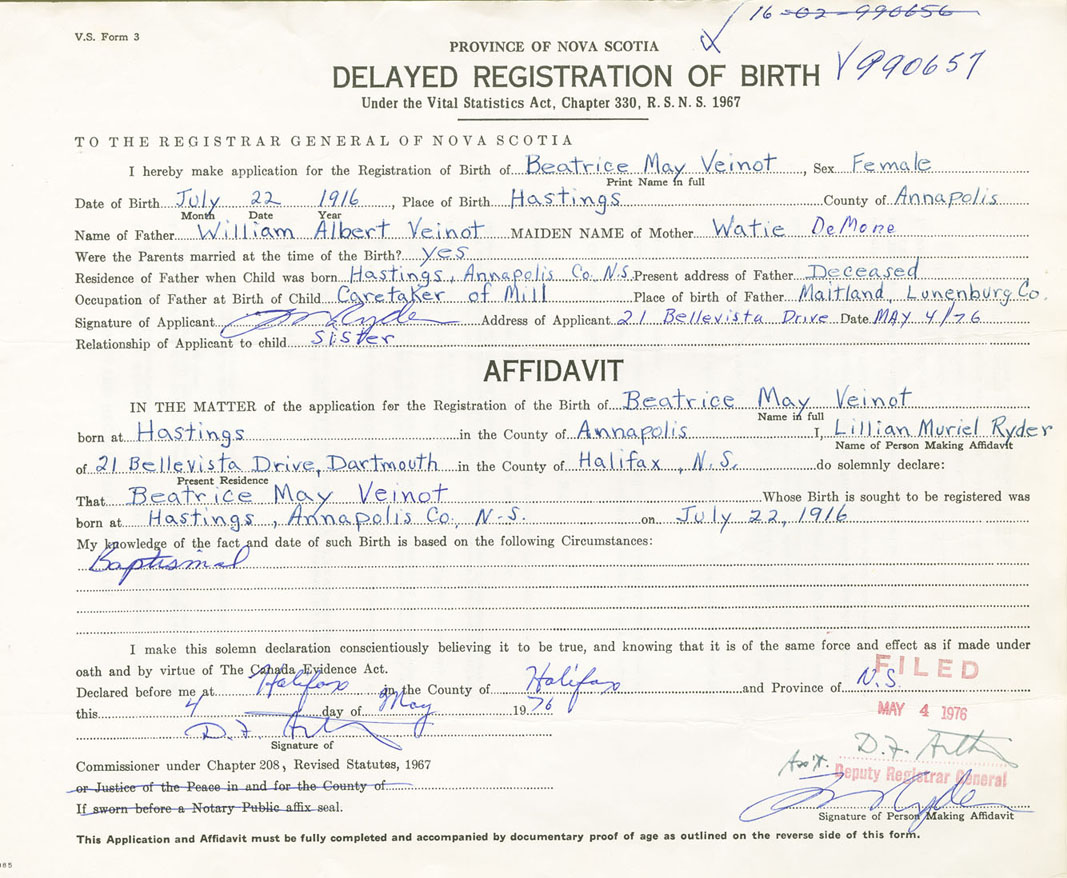 16-02-990656
V.S. Form 3
PROVINCE OF NOVA SCOTIA
DELAYED REGISTRATION OF BIRTH
990657
Under the Vital Statistics Act, Chapter 330, R.S.N.S. 1967
TO THE REGISTRAR GENERAL OF NOVA SCOTIA
I hereby make application for the Registration of Birth of Beatrice May Veinot, Sex Female
Print Name in full
Date of Birth July 22 1916, Place of Birth Hastings County of Annapolis
Month Date Year
Name of Father William Albert Veinot MAIDEN NAME of Mother Watie DeMone
Were the Parents married at the time of the Birth? yes
Residence of Father when Child was born Hastings, Annapolis Co. N.S. Present address of Father Deceased
Occupation of Father at Birth of Child Caretaker of Mill Place of birth of Father Maitland, Lunenburg Co.
Signature of Applicant Ryder Address of Applicant 21 Bellevista Drive Date MAY 4/76
Relationship of Applicant to child Sister
AFFIDAVIT
IN THE MATTER of the application for the Registration of the Birth of Beatrice May Veinot
Name in full
born at Hastings in the County of Annapolis I, Lillian Muriel Ryder
Name of Person Making Affidavit
of 21 Bellevista Drive, Dartmouth in the County of Halifax, N.S. do solemnly declare:
Present Residence
That Beatrice May Veinot Whose Birth is sought to be registered was
born at Hastings, Annapolis Co., N-S. on July 22, 1916
My knowledge of the fact and date of such Birth is based on the following Circumstances:
Baptismal
I make this solemn declaration conscientiously believing it to be true, and knowing that it is of the same force and effect as if made under
oath and by virtue of The Canada Evidence Act.
FILED
Declared before me at Halifax in the County of Halifax and Province of N.S.
this 4 day of May 1976
MAY 4 1976
D.F.
Signature of
D.F.
Commissioner under Chapter 208, Revised Statutes, 1967
Ass't. Deputy Registrar General
or Justice of the Peace in and for the County of
Ryder
If sworn before a Notary Public affix seal.
Signature of Person Making Affidavit
This Application and Affidavit must be fully completed and accompanied by documentary proof of age as outlined on the reverse side of this form.